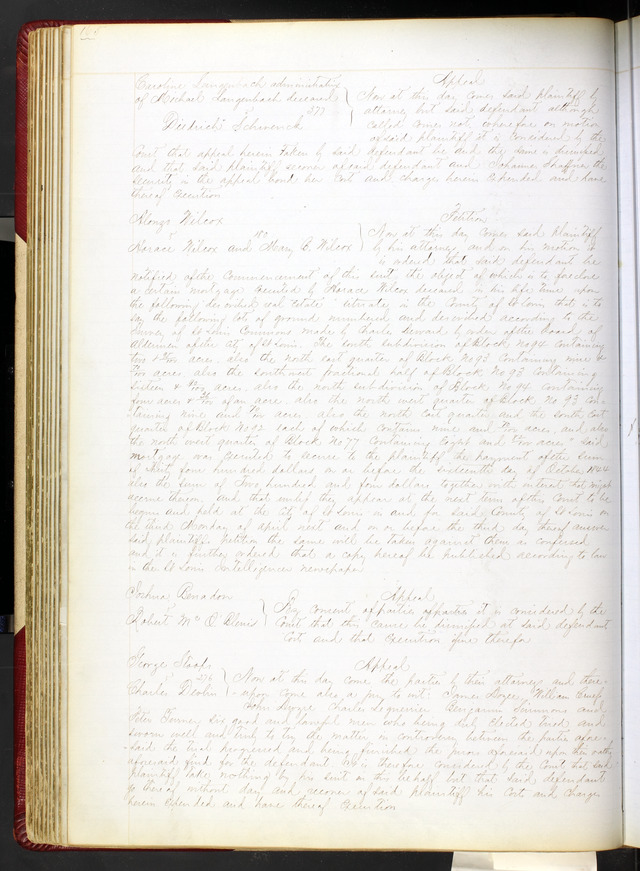 Caroline Langenbach administratrix Appeal
of Michael Langenbach deceased Now at this day comes said plaintiff by
277 attorney but said defendant although
Diedrich Schaverick called comes not wherefore on motion
of said plaintiff it is considered by the
Court that appeal herein taken by said defendant be and the same is dismissed
and that said plaintiff recover of said defendant and the
security in the appeal bond her Cost and charges herein expended and have
thereof Execution
Alonzo Wilcox Petition
vs 150 Now at this day comes said Plaintiff
Horace Wilcox and Mary E. Wilcox by his attorney, and on his motion it
is ordered that said defendant be
notified of the Commencement of this suit, the object of which is to foreclose
a certain mortgage executed by Horace Wilcox deceased in his life time upon
the following described real Estate situate in the County of St Louis that is to
say the following lots of ground numbered and described according to the
Survey of St Louis Commons made by Charles by order of the Board of
Aldermen of the city of St Louis The south subdivision of Block No 94 containing
two & acres, also the north east quarter of Block No 93 Containing nine &
acres also the southwest fractional half of Block No 93 containing
sixteen & acres, also the north subdivision of Block No 94 containing
four acres & of an acre also the north west quarter of Block No 93 con-
taining nine and acres also the north east quarter and the south east
quarter of Block No 92 each of which contains nine and acres, and also
the north west quarter of Block No 77 Containing Eight and acres" said
mortgage was executed to secure to the plaintiff the payment of the sum
of four hundred dollars on or before the sixteenth day of October 1844
also the sum of Two hundred and four dollars together with interest that might
accrue thereon. And that unless they appear at the next term of this Court to be
begun and held at the City of St Louis in and for said County of St Louis on
the third Monday of April next and on or before the third day thereof answer
said plaintiffs Petition the same will be taken against them as confessed
and it is further ordered that a copy hereof be published according to law
in the St Louis Intelligencer newspaper
Joshua Appeal
vs By consent of parties it is considered by the
Robert Mc O Blenis Court that this cause be dismissed at said defendant
Cost and that Execution issue therefor
George Appeal
vs 276 Now at this day come the parties by their attorneys and there-
Charles Devlin upon come also a jury to wit: James Dwyer, William
John Dwyre Charles Benjamin Simmons and
Peter six good and lawful men who being duly elected tried and
sworn well and truly to try the matter in controversy between the parties afore-
said the trial progressed and being finished the jurors aforesaid upon their oath
aforesaid find for the defendant it is therefore considered by the Court that said
plaintiff take nothing by his suit in this behalf but that said defendant
go hereof without day and recover of said plaintiff his Cost and Charges
herein expended and have thereof Execution